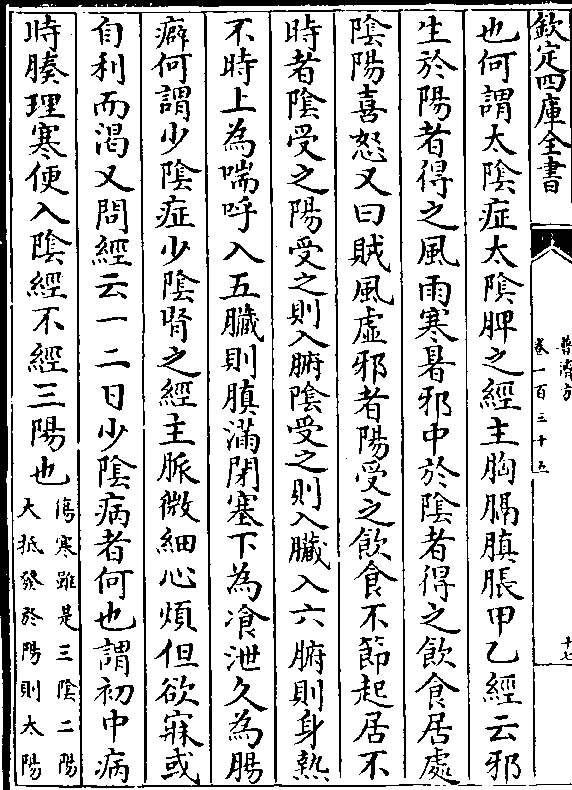 欽定四庫全書
普濟方
卷一百三十五
十七
也何謂太陰症太陰脾之經主胸膈䐜脹甲乙經云邪
生於陽者得之風雨寒暑邪中於陰者得之飲食居處
陰陽喜怒又曰賊風虛邪者陽受之飲食不節起居不
時者陰受之陽受之則入腑陰受之則入臟入六腑則身熱
不時上為喘呼入五臟則䐜滿閉塞下為飧泄久為腸
癖何謂少陰症少陰腎之經主脈微細心煩但欲寐或
自利而渴又問經云一二日少陰病者何也謂初中病
時腠理寒便入陰經不經三陽也
傷寒雖是三陰二陽
大抵發於陽則太陽